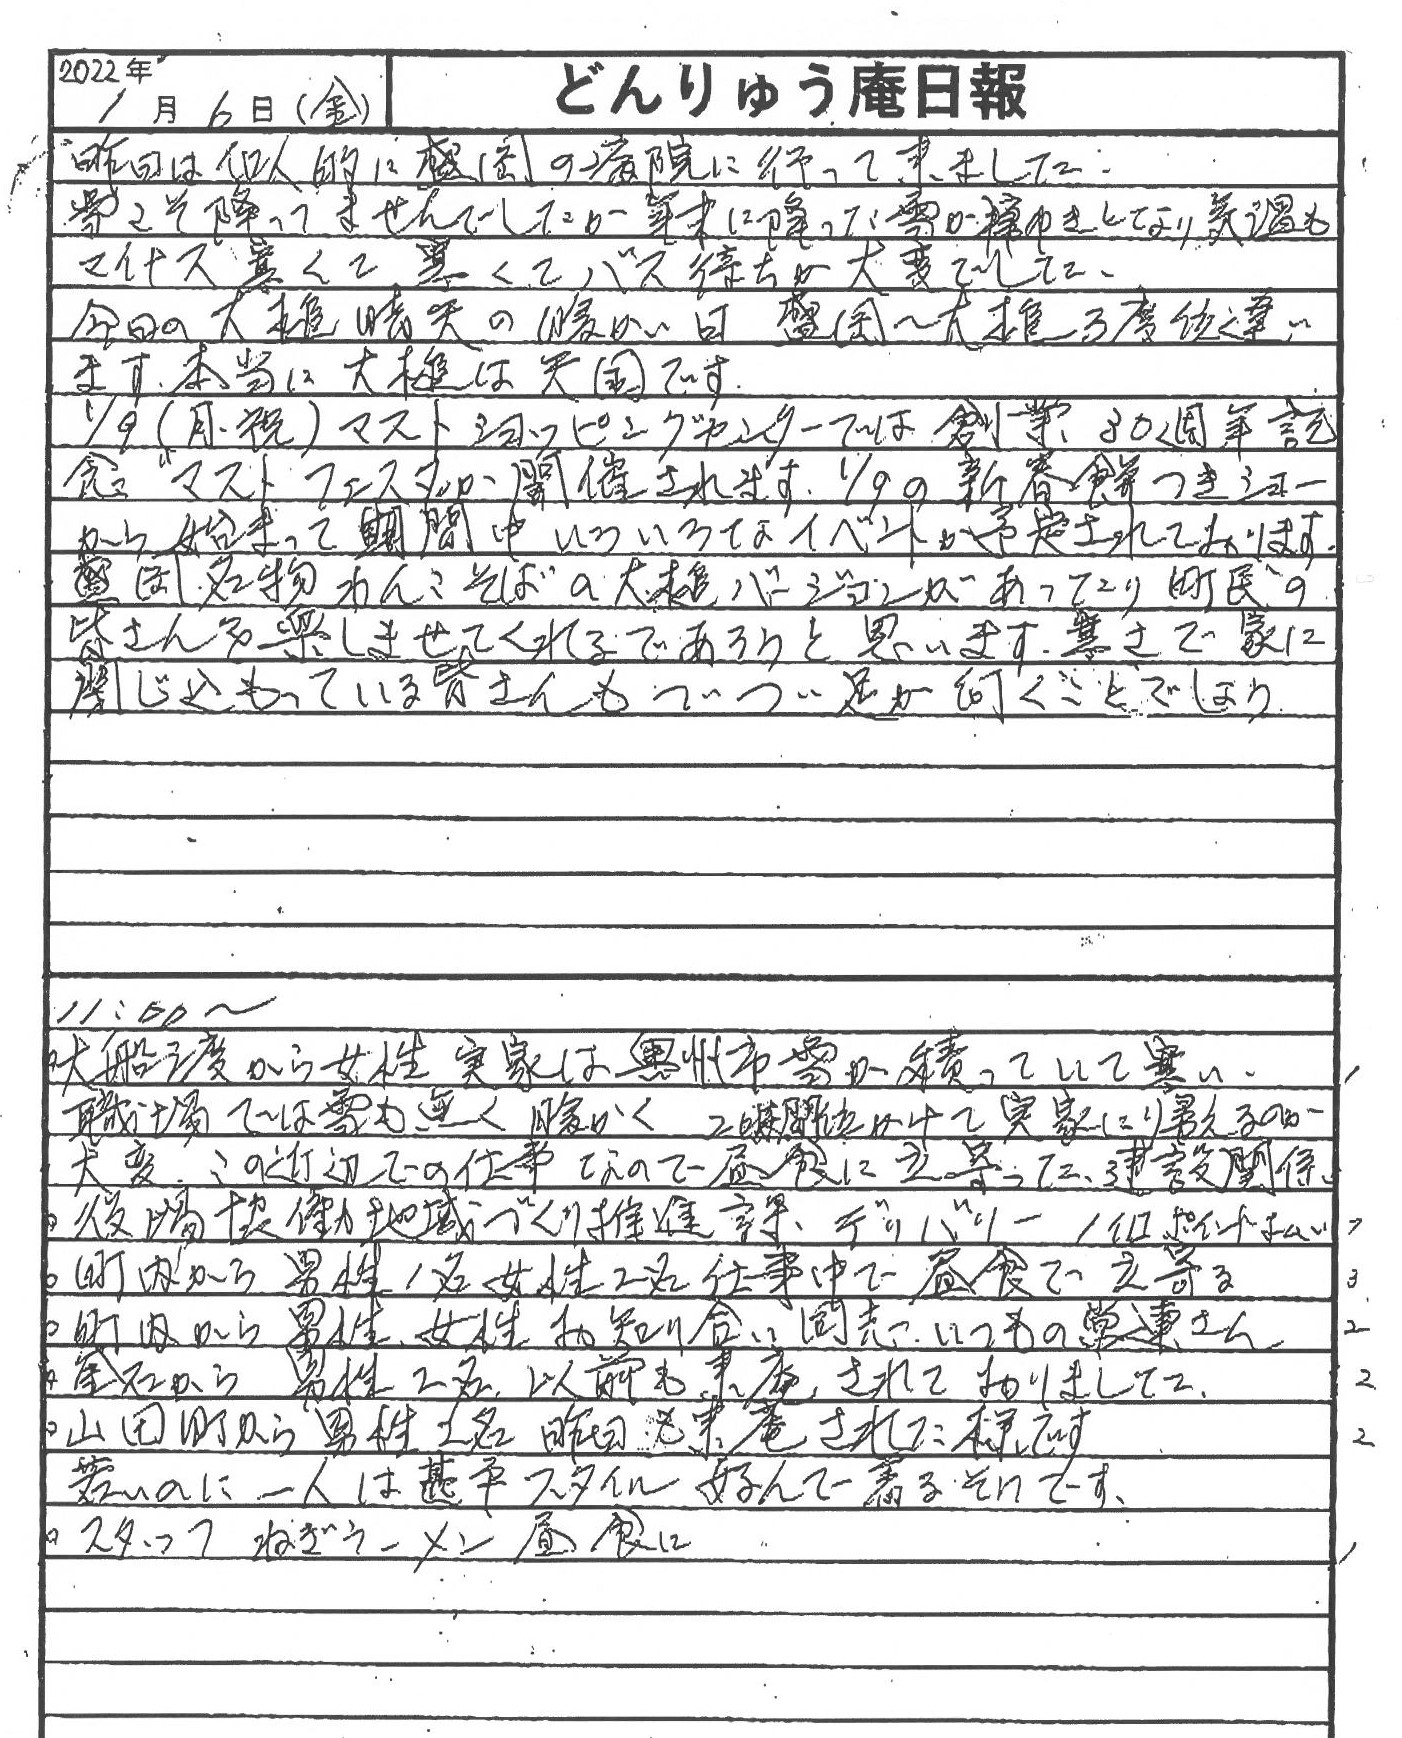 2022年
1月6日(金)
どんりゅう庵日報
昨日は個人的に盛岡の病院に行って来ました.
雪こそ降ってませんでしたが年末に降った雪が根ゆきとなり気温も
マイナス 寒くて 寒くてバス待ちが大変でした.
今日の大槌晴天の暖かい日 盛岡〜大槌 3度位違い
ます.本当に大槌は天国です.
1/9(月・祝)マスト ショッピングセンターでは創業30周年記
念"マストフェスタ"が開催されます. 1/9の新春餅つきショー
から始まって期間中いろいろなイベントが予定されております.
盛岡名物わんこそばの大槌バージョンがあったり町民の
皆さんを楽しませてくれるであろうと思います.寒さで家に
閉じこもっている皆さんもついつい足が向くことでしょう
11:00〜
o大船渡から女性 実家は奥州市雪が積っていて寒い. 1
職場では雪も無く暖かく 2時間位かけて実家に帰るのが
大変.この近辺での仕事なので昼食に立寄った.建設関係.
o役場協働地域づくり推進課.デリバリー 1個ポイント払い 1
o町内から 男性1名 女性2名 仕事中で昼食で立寄る 3
o町内から 男性.女性 お知り合い同志.いつもの常連さん 2
o釜石から 男性2名.以前も来庵されておりました. 2
o山田町から男性2名 昨日も来庵された様です 2
若いのに一人は甚平スタイル 好んで着るそうです.
oスタッフ ねぎラーメン 昼食に 1